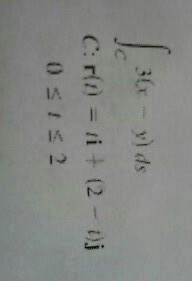 ∫_C 3(x − y) ds
C: r(t) = ti + (2 − t)j
0 ≤ t ≤ 2